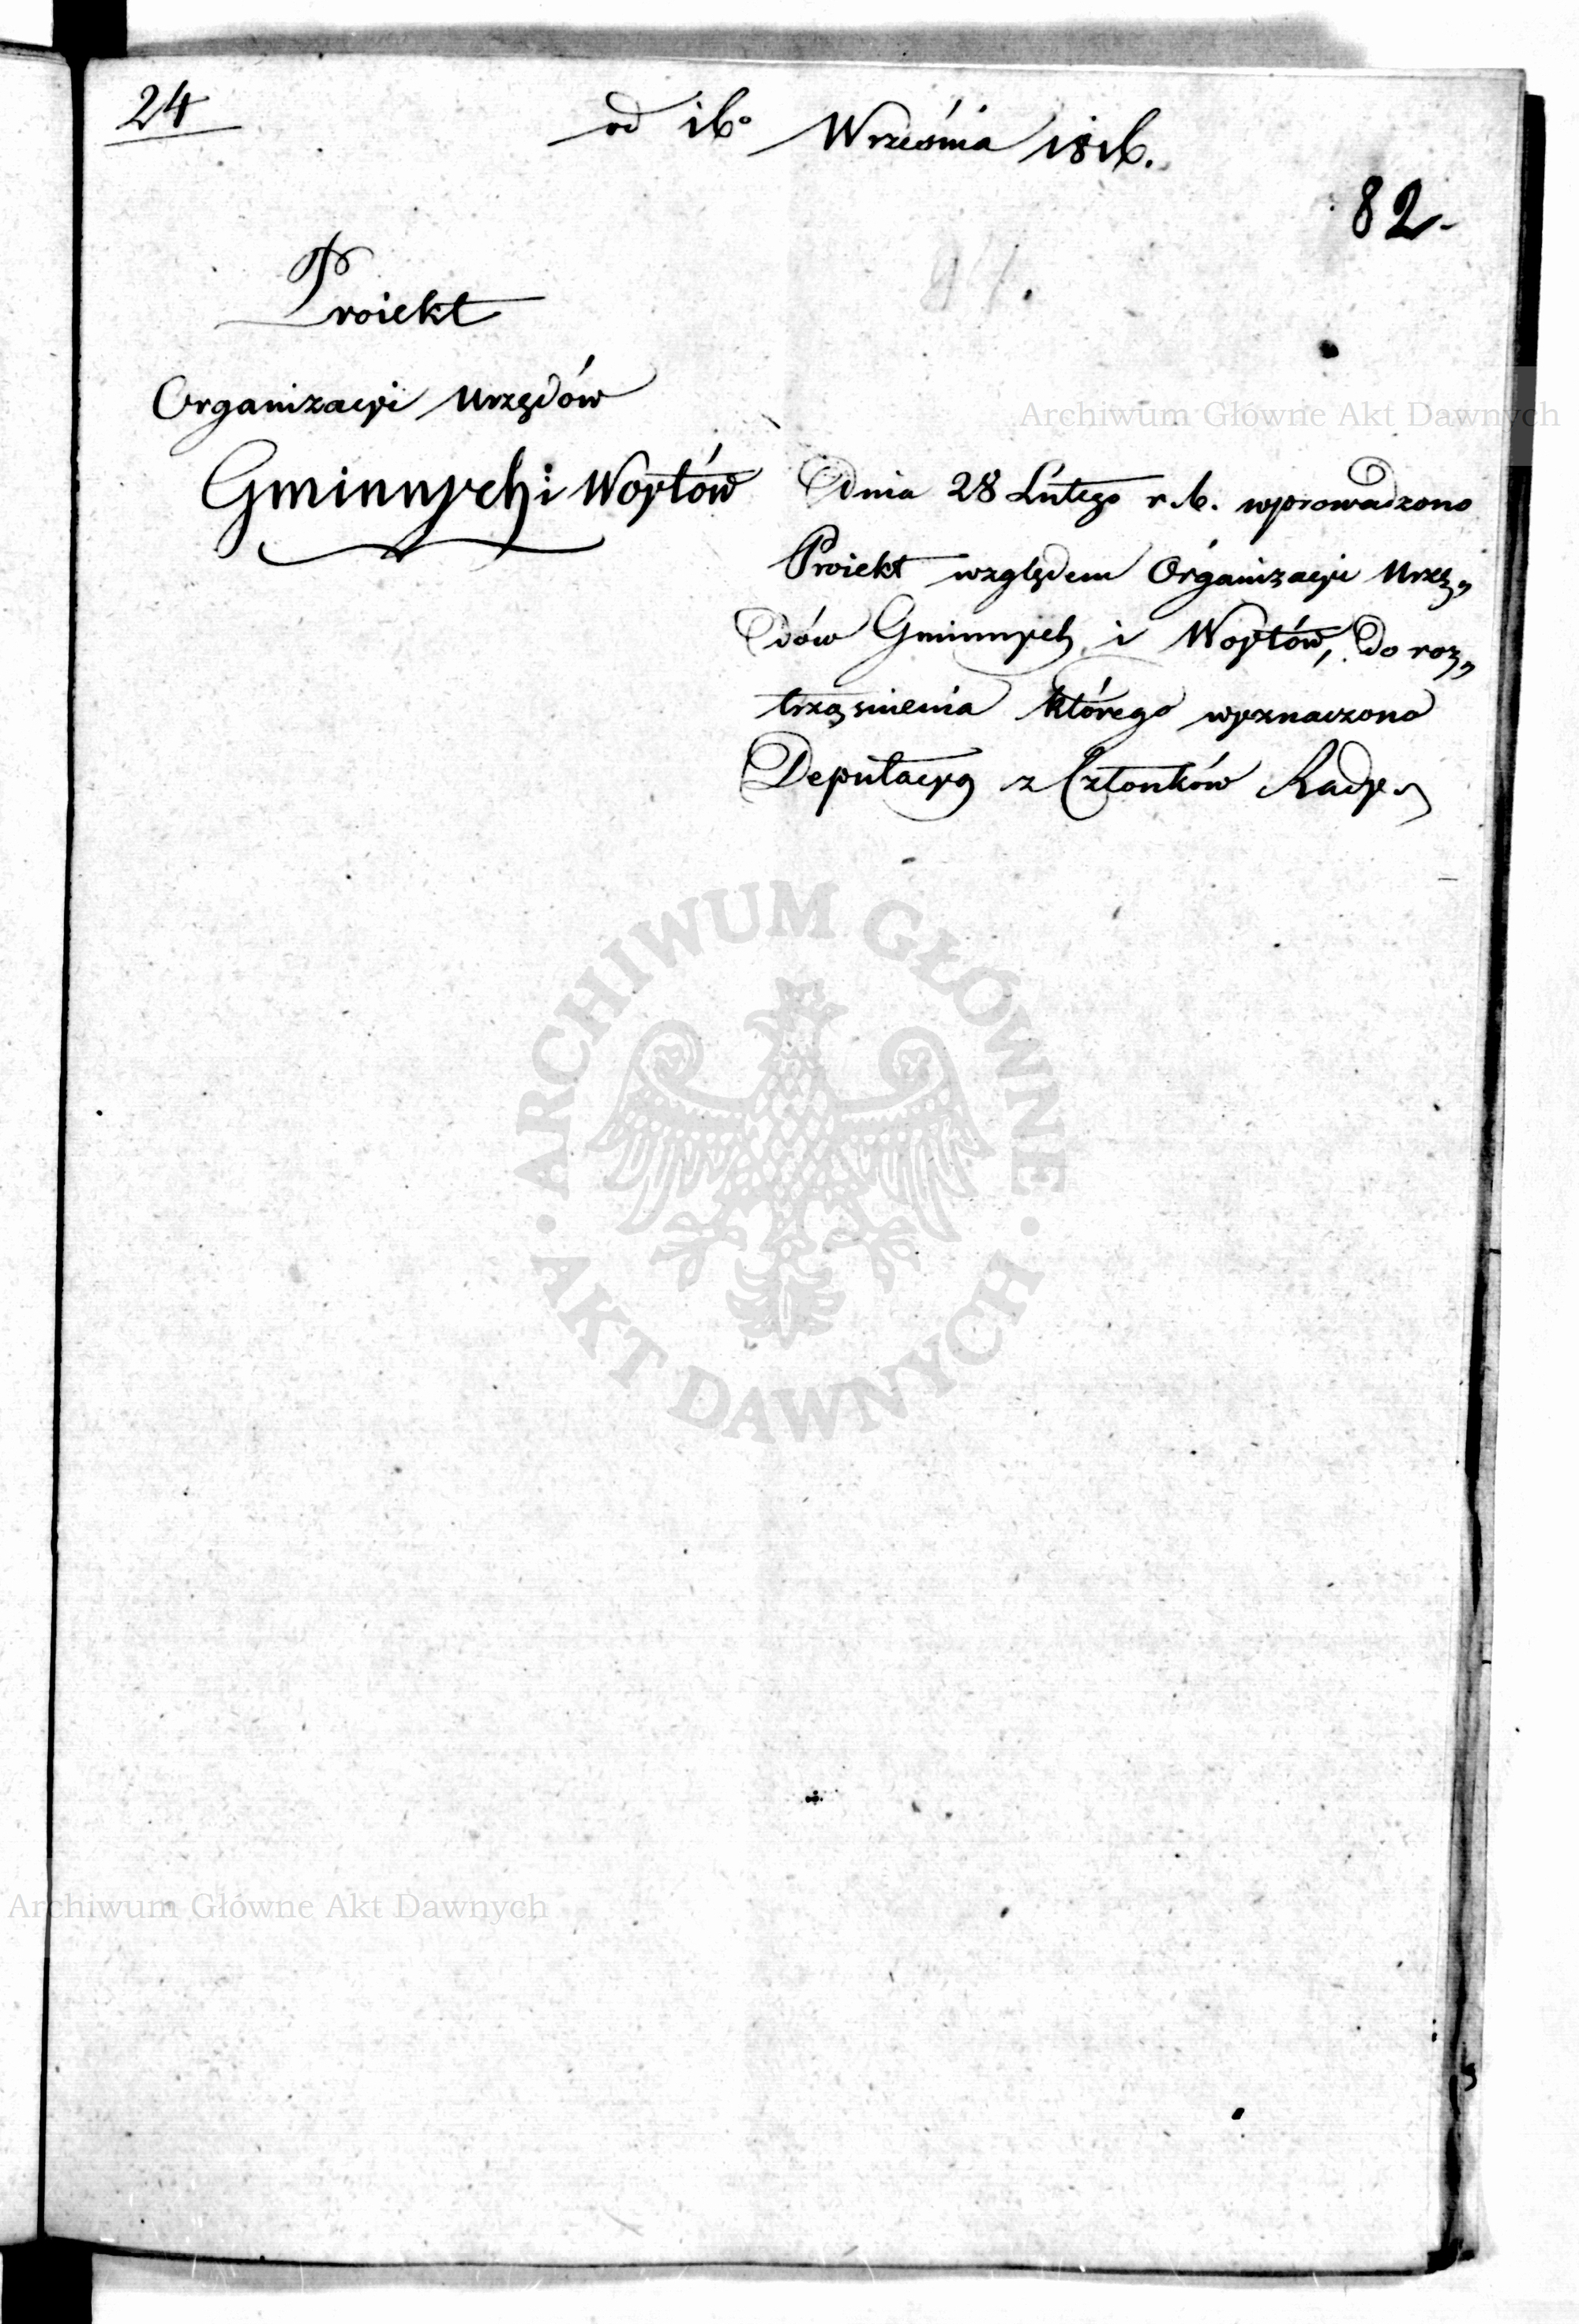 24
od 16º Września 1816.
82.
Proiekt
Organizacyi Urzędów
Gminnych i Woytów
Dnia 28 Lutego r. b. wprowadzono
Proiekt względem Organizacyi Urzę„
dów Gminnych i Woytów, do roz„
trząsnienia którego wyznaczono
Deputacyą z Członków Rady.
Archiwum Główne Akt Dawnych
ARCHIWUM GŁÓWNE
· AKT DAWNYCH ·
Archiwum Główne Akt Dawnych